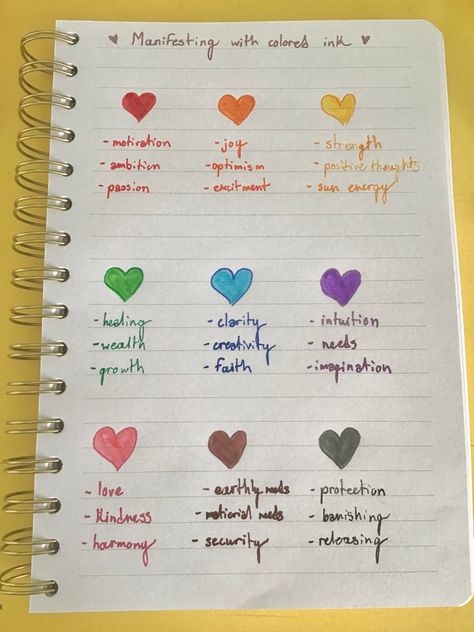 Manifesting with colored ink
- motivation
- ambition
- passion
- joy
- optimism
- excitment
- strength
- positive thoughts
- sun energy
- healing
- wealth
- growth
- clarity
- creativity
- faith
- intuition
- needs
- imagination
- love
- kindness
- harmony
- earthly needs
- material needs
- security
- protection
- banishing
- releasing